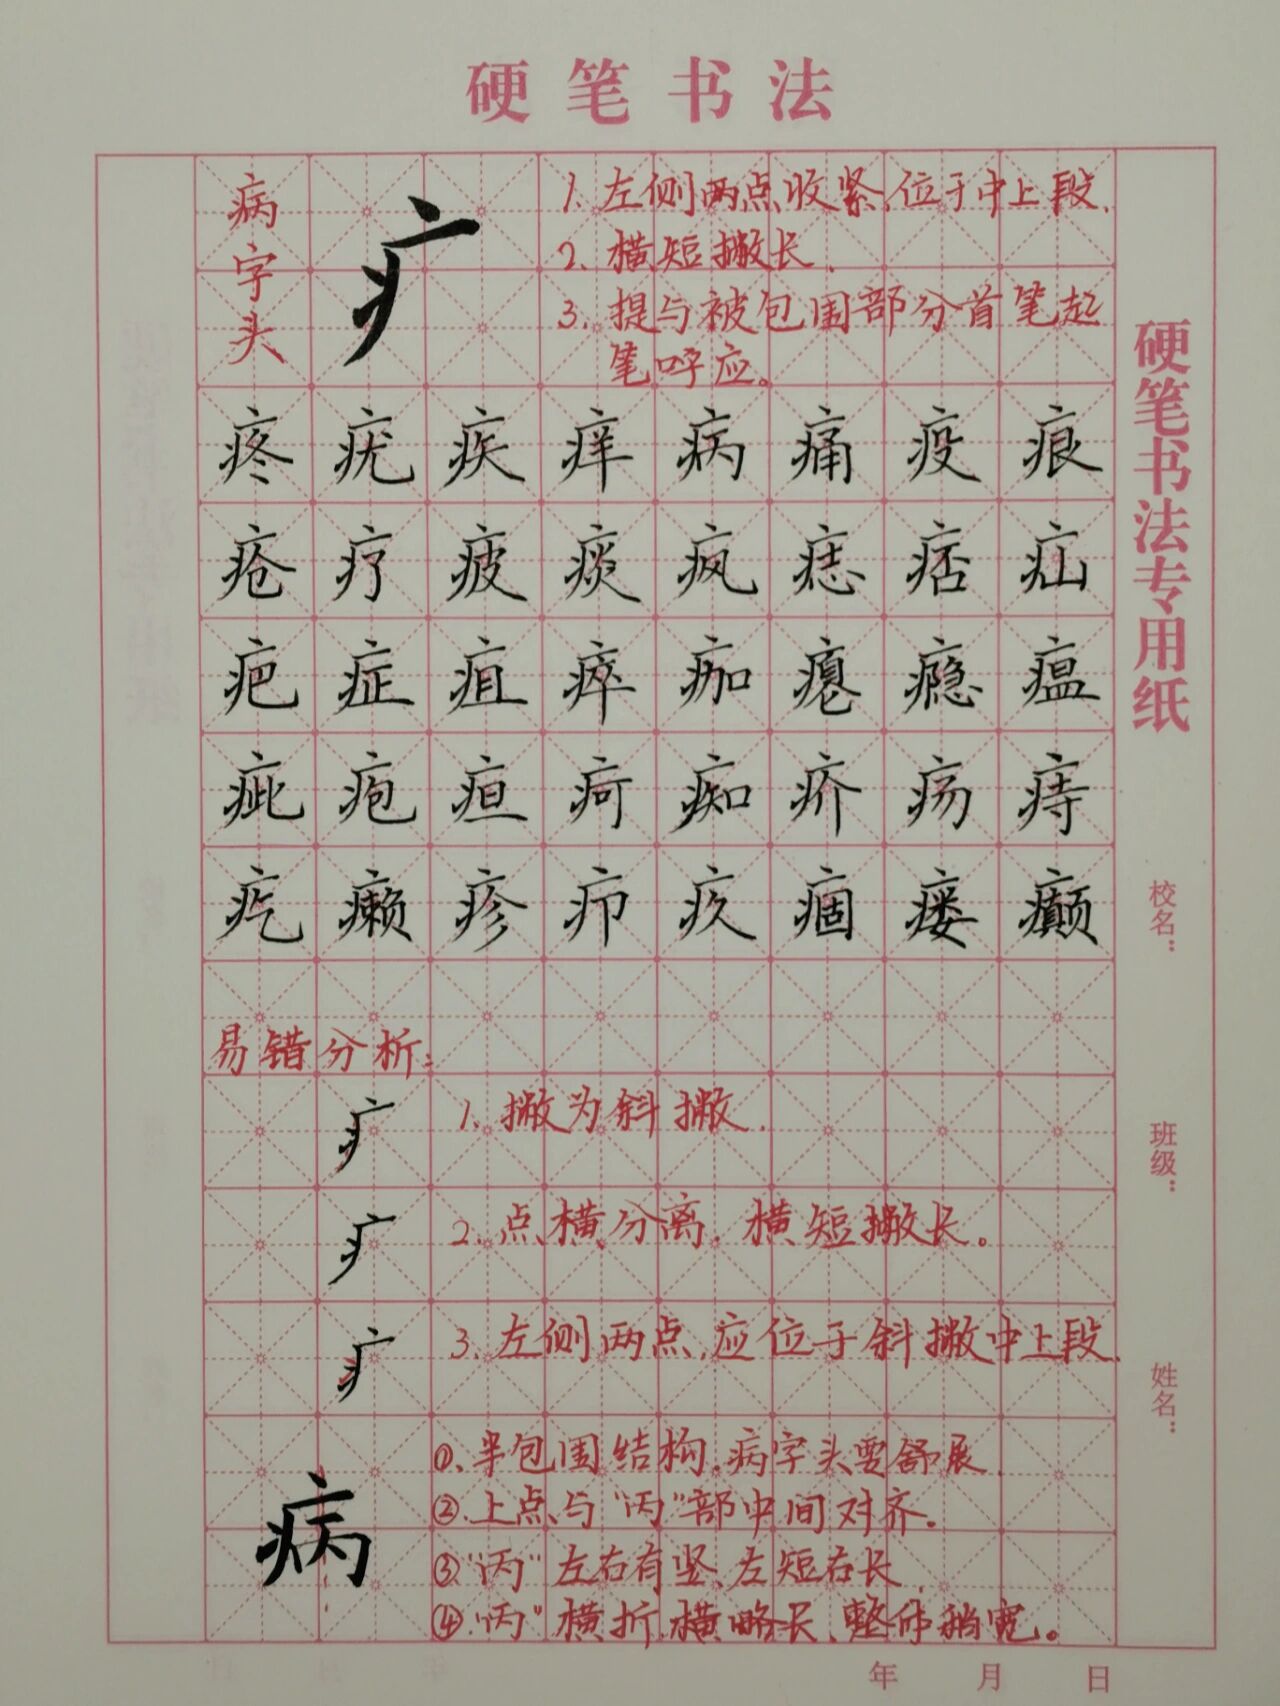 硬笔书法
病字头
疒
1. 左侧两点收紧,位于中上段.
2. 横短撇长.
3. 提与被包围部分首笔起
笔呼应。
疼疣疾痒病痛疫痕
疮疗疲痰疯痣痞疝
疤症疽瘁痂瘪瘾瘟
疵疱疸疴痴疥疡痔
疙癞疹疖疚痼瘘癫
易错分析:
疒 1. 撇为斜撇.
疒 2. 点横分离,横短撇长。
疒 3. 左侧两点,应位于斜撇中上段.
病
①.半包围结构.病字头要舒展.
②.上点与"丙"部中间对齐.
③"丙"左右有竖、左短右长.
④."丙"横折横略长、整体稍宽。
硬笔书法专用纸
校名:
班级:
姓名:
年 月 日